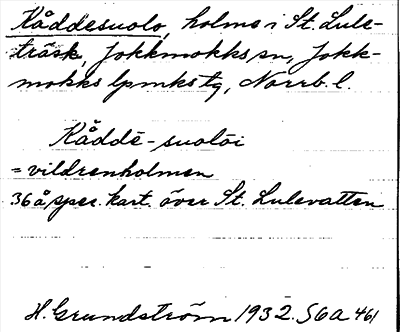 Kåddesuolo, holme i St. Lule-
träsk, Jokkmokks sn, Jokk-
mokks lpmks tg, Norrb. l.
Kåddē-suoloi
= vildrenholmen
36 å spec. kart. över St. Lulevatten
H. Grundström 1932. S6a 461